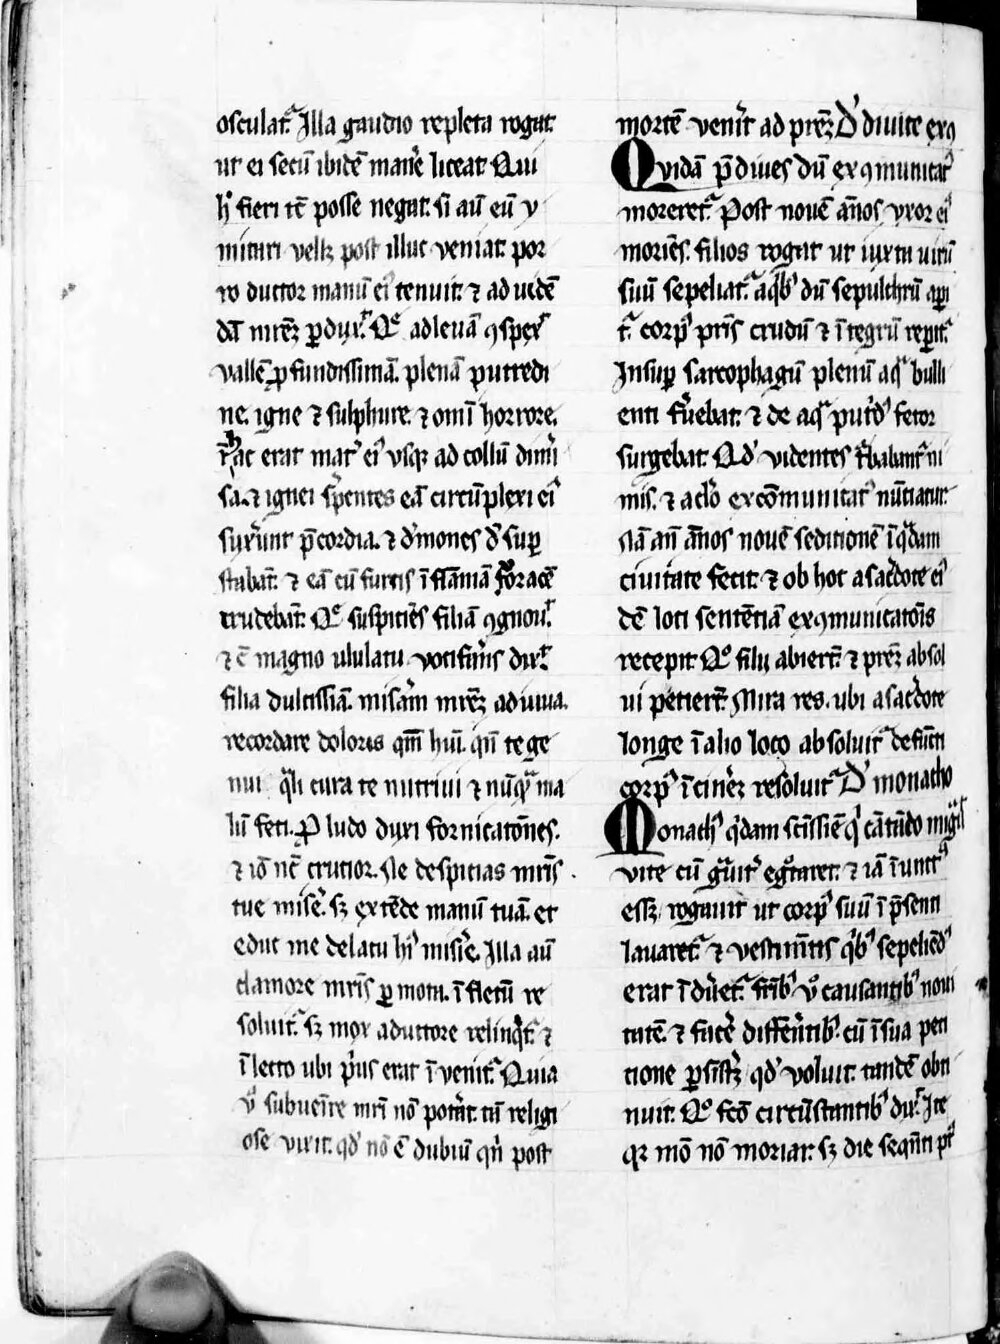 osculat᷑. Illa gaudio repleta rogat
ut ei secū ibidē man̾e liceat. Qui
h᷒ fieri tc̄ posse negat. si aū eū y
mitari vellꝫ post illuc veniat. por
ro ductor manū ei᷒ tenuit. ⁊ ad uidē
dā mr̄eꝫ ꝑduxͭ. Q̊ ad leuā ꝯspexͭ
vallē ꝓfundissimā. plenā putredi
ne. igne ⁊ sulphure. ⁊ om̄i horrore.
erat mat̾ ei᷒ vsqꝫ ad collū dim̄
sa. ⁊ ignei s̾pentes eā circūplexi ei᷒
sux̾unt p̄cordia. ⁊ d̾mones d̾ suꝑ
stabāt. ⁊ eā cū furcis ī flāmā fornacē
trudebāt. Q̊ suspiciēs filiā ꝯgnouͭ.
⁊ c̄ magno ululatu vocifērās dixͭ
filia dulcissīa. mis̾am mr̄eꝫ adiuua.
recordare doloris qm̄ hui. qn̄ te ge
nui qͣli cura te nutriui ⁊ nūqͣ ma
lū feci. Ꝓ ludo duxi fornicatōnes.
⁊ iō nc̄ crucior. Ne despicias mr̄is
tue mise᷑. sꝫ extēde manū tuā. et
educ me delatū hi᷒ misi᷑e. Illa aū
clamore mr̄is ꝑmota. ī fletū re
soluit᷑. sꝫ mox a ductore relinqͥt᷑. ⁊
ī lecto ubi pͥus erat īvenit᷑. Quia
v̊ subuen̄re mr̄i nō pot̾at. tn̄ religi
ose vixit. qd̾ nō ē dubiū qn̄ post
mortē venit᷑ ad pr̄eꝫ D̾ diuite exꝯ
Qvidā p̄diues dū exꝯmunicat᷒
moreret᷑. Post nouē ān̄os vxor ei᷒
moriēs. filios rogat ut iuxta uirū
suū sepeliat᷑. a qͥb᷒ dū sepulchrū aꝑi
t᷑. corp᷒ pr̄is crudū ⁊ ītegrū reꝑit᷑.
Insuꝑ sarcophagū plenū aqͣ bulli
enti f̾uebat. ⁊ de aqͣ put᷑d᷒ fetor
surgebat. Qd̾ videntes t᷑babant᷑ ni
mis. ⁊ a cl̾o excōmunicat᷒ nūciatur.
Nā an̄ ān̄os nouē seditionē ī qͣdam
ciuitate fecit. ⁊ ob hoc a sac̾dote ei᷒
dē loci sentēciā exꝯmunicatōis
recepit. Q̊ filij abier̄t. ⁊ pr̄eꝫ absol
ui petier̄t. Mira res. ubi a sac̾dote
longe ī alio loco absoluit᷑ defūcti
corp᷒ ī cin̾eꝫ resoluit᷑. D̾ monacho
Monach᷒ qͥdam
vite cū gͣuit̾ egͦtaret. ⁊ iā ī uncͭ᷒
essꝫ rogauit ut corp᷒ suū ī p̄senti
lauaret᷑. ⁊ vestim̄tis qͥb᷒ sepeliēd᷒
erat īdu̾et᷑. fr̄ib᷒ v̊ causantib᷒ noui
tatē. ⁊ fac̾e diff̾entib᷒. cū ī sua peti
tione ꝑsistꝫ qd̾ voluit. tandē obti
nuit. Q̊ fcō circūstantib᷒ dixͭ. Ite
qꝛ mō nō moriar. sꝫ die seqn̄ti p᷒